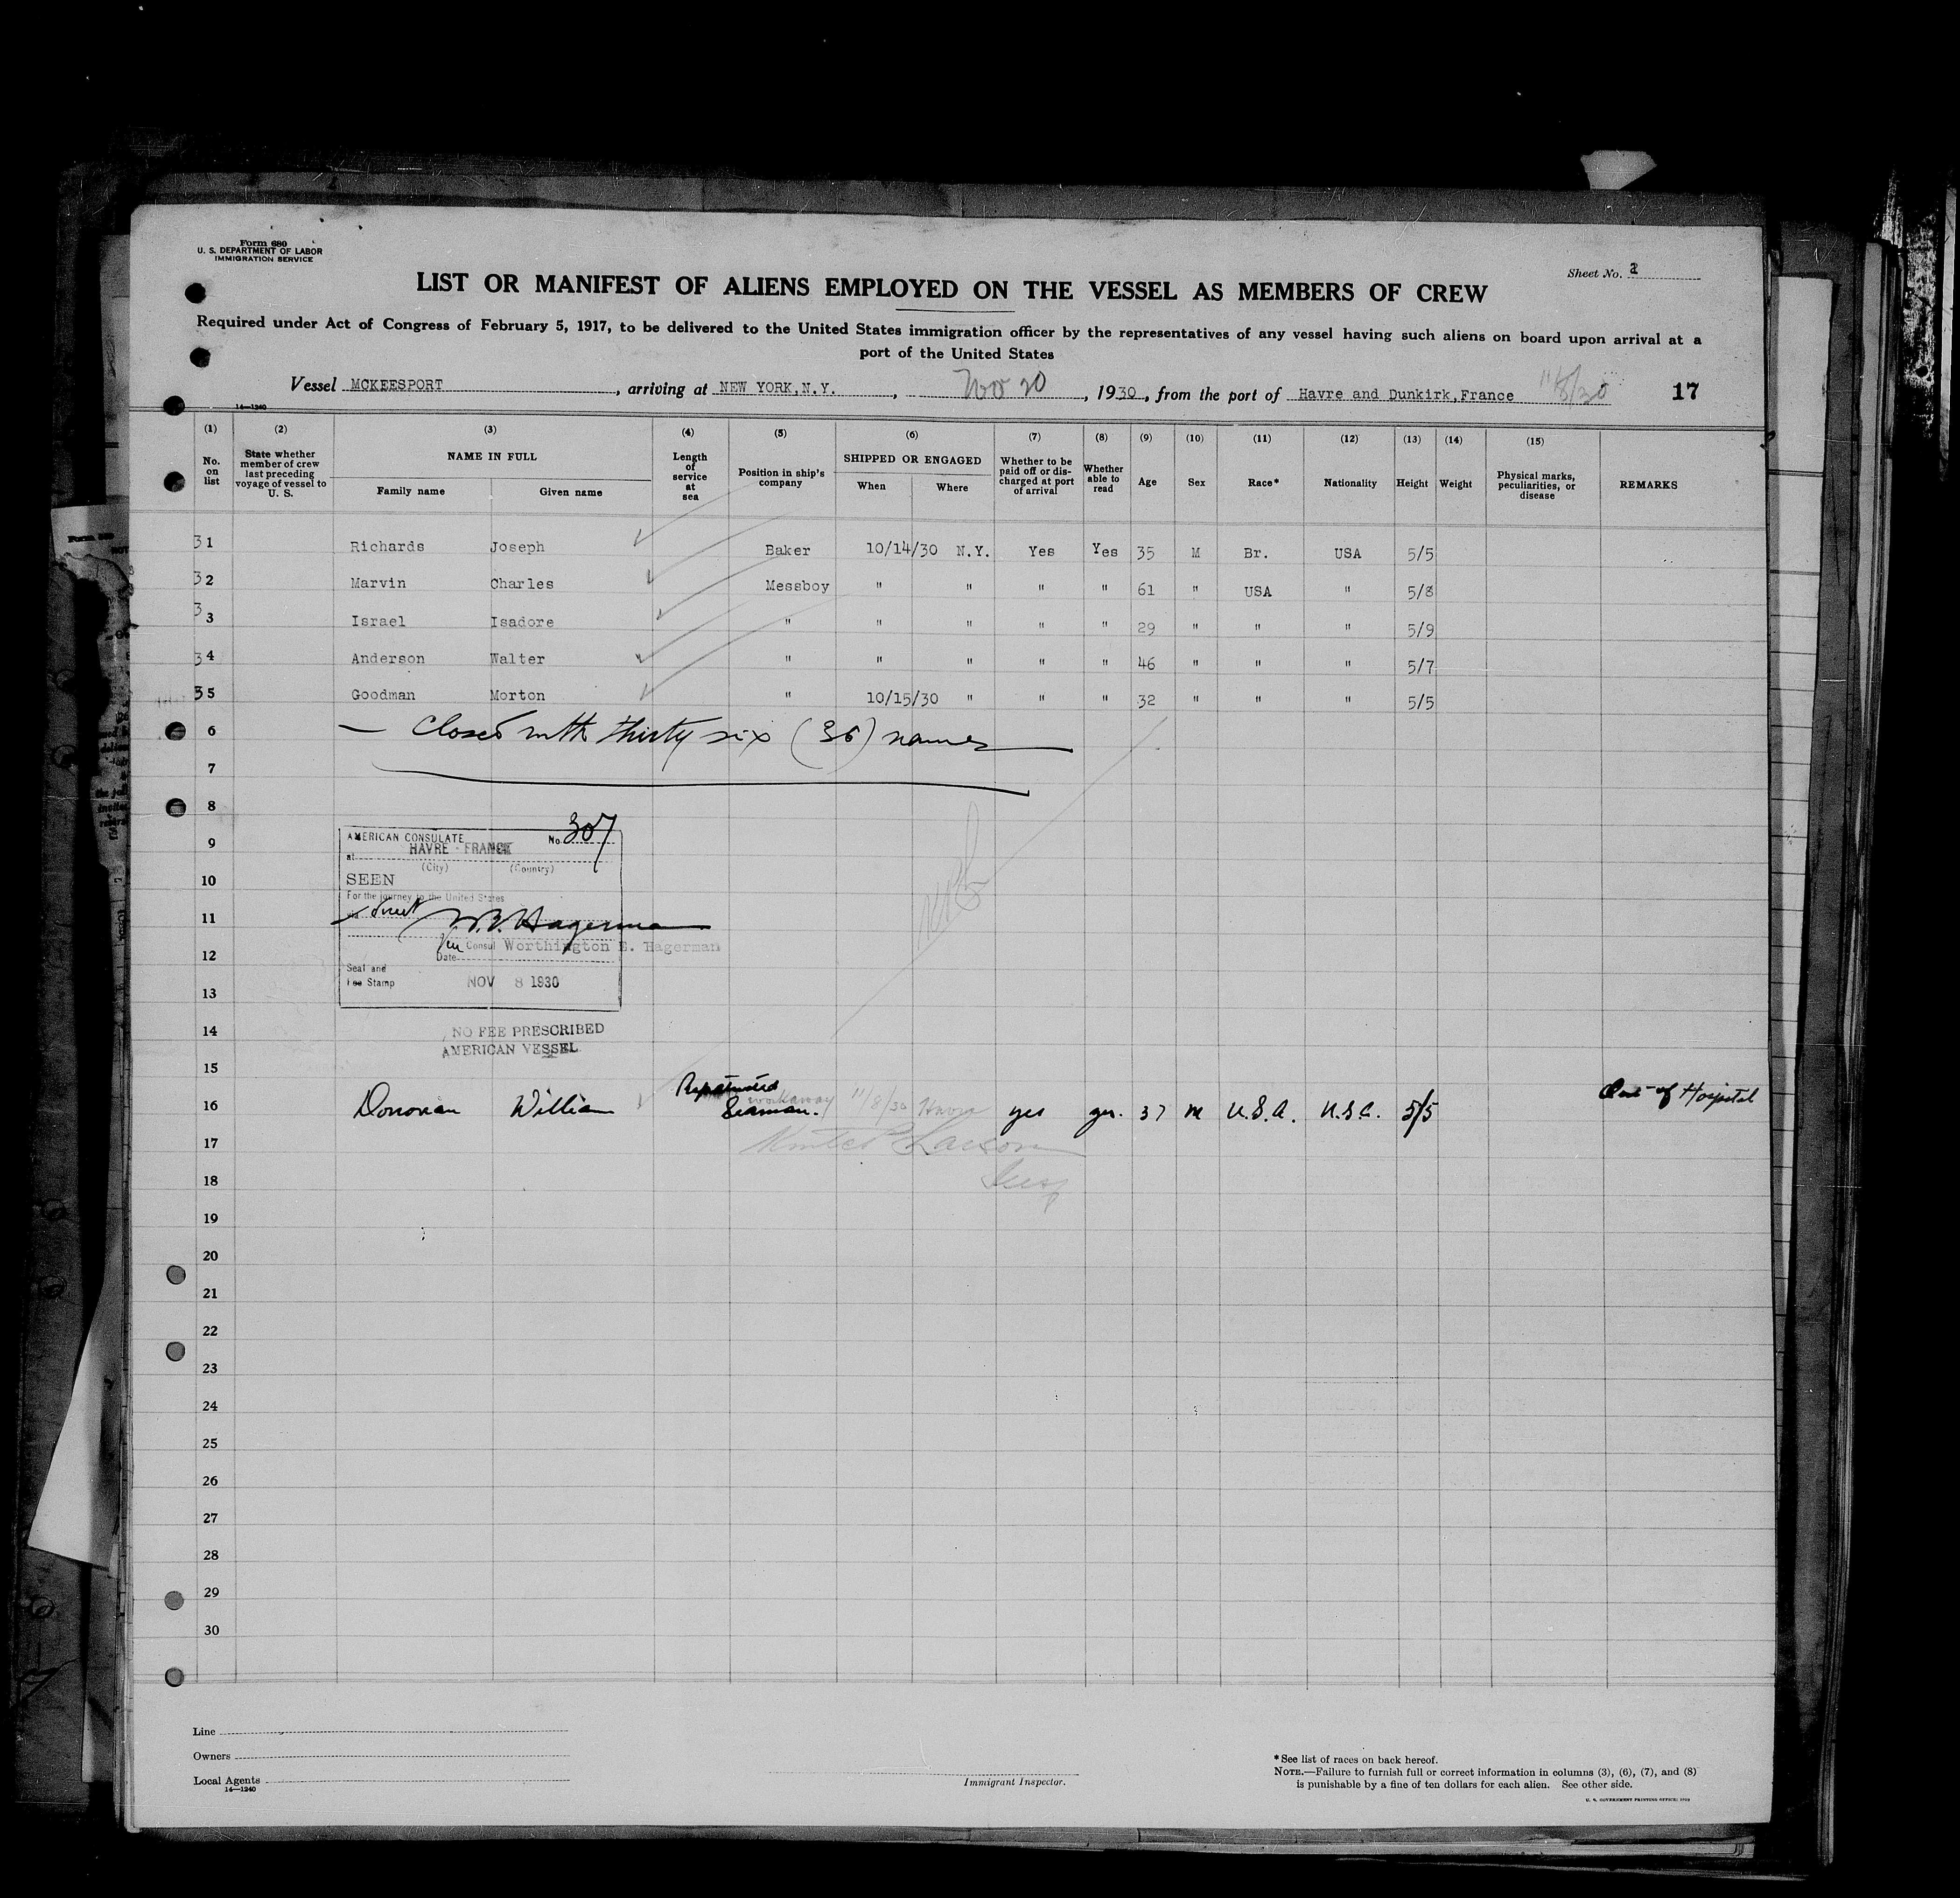 Form 680
U. S. DEPARTMENT OF LABOR
IMMIGRATION SERVICE
Sheet No. 2
LIST OR MANIFEST OF ALIENS EMPLOYED ON THE VESSEL AS MEMBERS OF CREW
Required under Act of Congress of February 5, 1917, to be delivered to the United States immigration officer by the representatives of any vessel having such aliens on board upon arrival at a
port of the United States
Vessel MCKEESPORT, arriving at NEW YORK,N.Y., Nov 20, 1930, from the port of Havre and Dunkirk,France 11/8/30 17
14—1240
(1) (2) (3) (4) (5) (6) (7) (8) (9) (10) (11) (12) (13) (14) (15)
No. on list
State whether member of crew last preceding voyage of vessel to U. S.
NAME IN FULL
Family name Given name
Length of service at sea
Position in ship's company
SHIPPED OR ENGAGED
When Where
Whether to be paid off or discharged at port of arrival
Whether able to read
Age Sex Race* Nationality Height Weight
Physical marks, peculiarities, or disease
REMARKS
31 Richards Joseph Baker 10/14/30 N.Y. Yes Yes 35 M Br. USA 5/5
32 Marvin Charles Messboy " " " " 61 " USA " 5/8
33 Israel Isadore " " " " " 29 " " " 5/9
34 Anderson Walter " " " " " 46 " " " 5/7
35 Goodman Morton " 10/15/30 " " " 32 " " " 5/5
6 — Closed with thirty six (36) names
7
8
9
10
11
12
13
14
15
AMERICAN CONSULATE No. 307
at HAVRE - FRANCE
(City) (Country)
SEEN
For the journey to the United States
via direct W. E. Hagerman
Vice Consul Worthington E. Hagerman
Date
Seal and
Fee Stamp NOV 8 1930
NO FEE PRESCRIBED
AMERICAN VESSEL
16 Donovan William Repatriated Seaman. workaway 11/8/30 Havre yes yes. 37 M U.S.A. U.S.A. 5/5 Out of Hospital
17
18 Insp
19
20
21
22
23
24
25
26
27
28
29
30
Line
Owners
Local Agents
14—1240
Immigrant Inspector.
* See list of races on back hereof.
NOTE.—Failure to furnish full or correct information in columns (3), (6), (7), and (8)
is punishable by a fine of ten dollars for each alien. See other side.
U. S. GOVERNMENT PRINTING OFFICE: